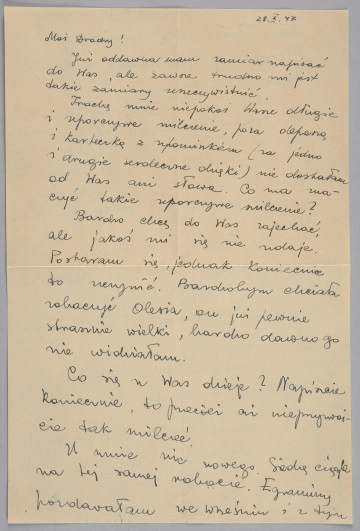 28.X.47
Moi Drodzy!
Już oddawna mam zamiar napisać
do Was, ale zawsze trudno mi jest
takie zamiary urzeczywistnić.
Trochę mnie niepokoi Wasze długie
i uporczywe milczenie, poza depeszą
i karteczką z upominkiem (za jedno
i drugie serdeczne dzięki) nie dostałam
od Was ani słowa. Co ma zna-
czyć takie uporczywe milczenie?
Bardzo chcę do Was zajechać,
ale jakoś mi się nie udaje.
Postaram się, jednak koniecznie
to uczynić. Bardzobym chciała
zobaczyć Olesia, on już pewnie
strasznie wielki, bardzo dawno go
nie widziałam.
Co się u Was dzieje? Napiszcie
koniecznie, to przecież nieprzyzwoi-
cie tak milczeć.
U mnie nic nowego. Siedzę ciągle
na tej samej robocie. Egzaminy
pozdawałam we wrześniu i z tym